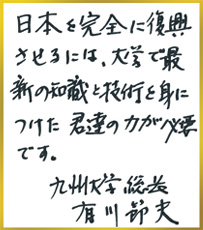 日本を完全に復興
させるには、大学で最
新の知識と技術を身に
つけた君達の力が必要
です。
九州大学総長
有川節夫